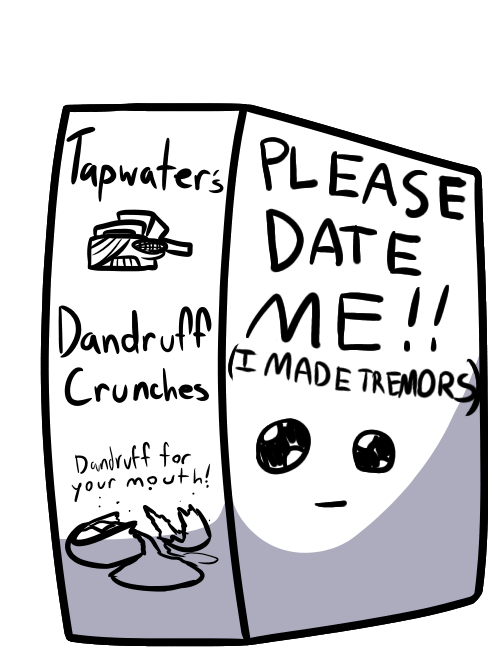 Tapwater's
Dandruff
Crunches
Dandruff for
your mouth!
PLEASE
DATE
ME!!
(I MADE TREMORS)